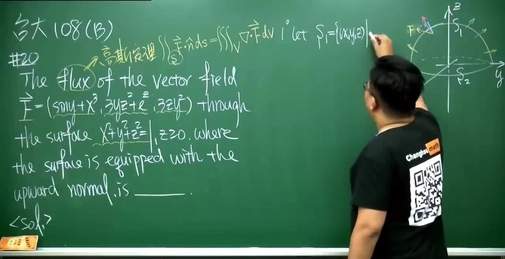 台大108(B)
#20
高斯散度定理 ∬_S F⃗·n̂ds=∭_V ∇·F⃗dV
1° let S₁={(x,y,z)|
The flux of the vector field
F⃗=(siny+x³, 3yz²+e^z, 3zy²) through
the surface x²+y²+z²=1, z≥0, where
the surface is equipped with the
upward normal, is ______.
<sol>
z
S₁
y
S₂